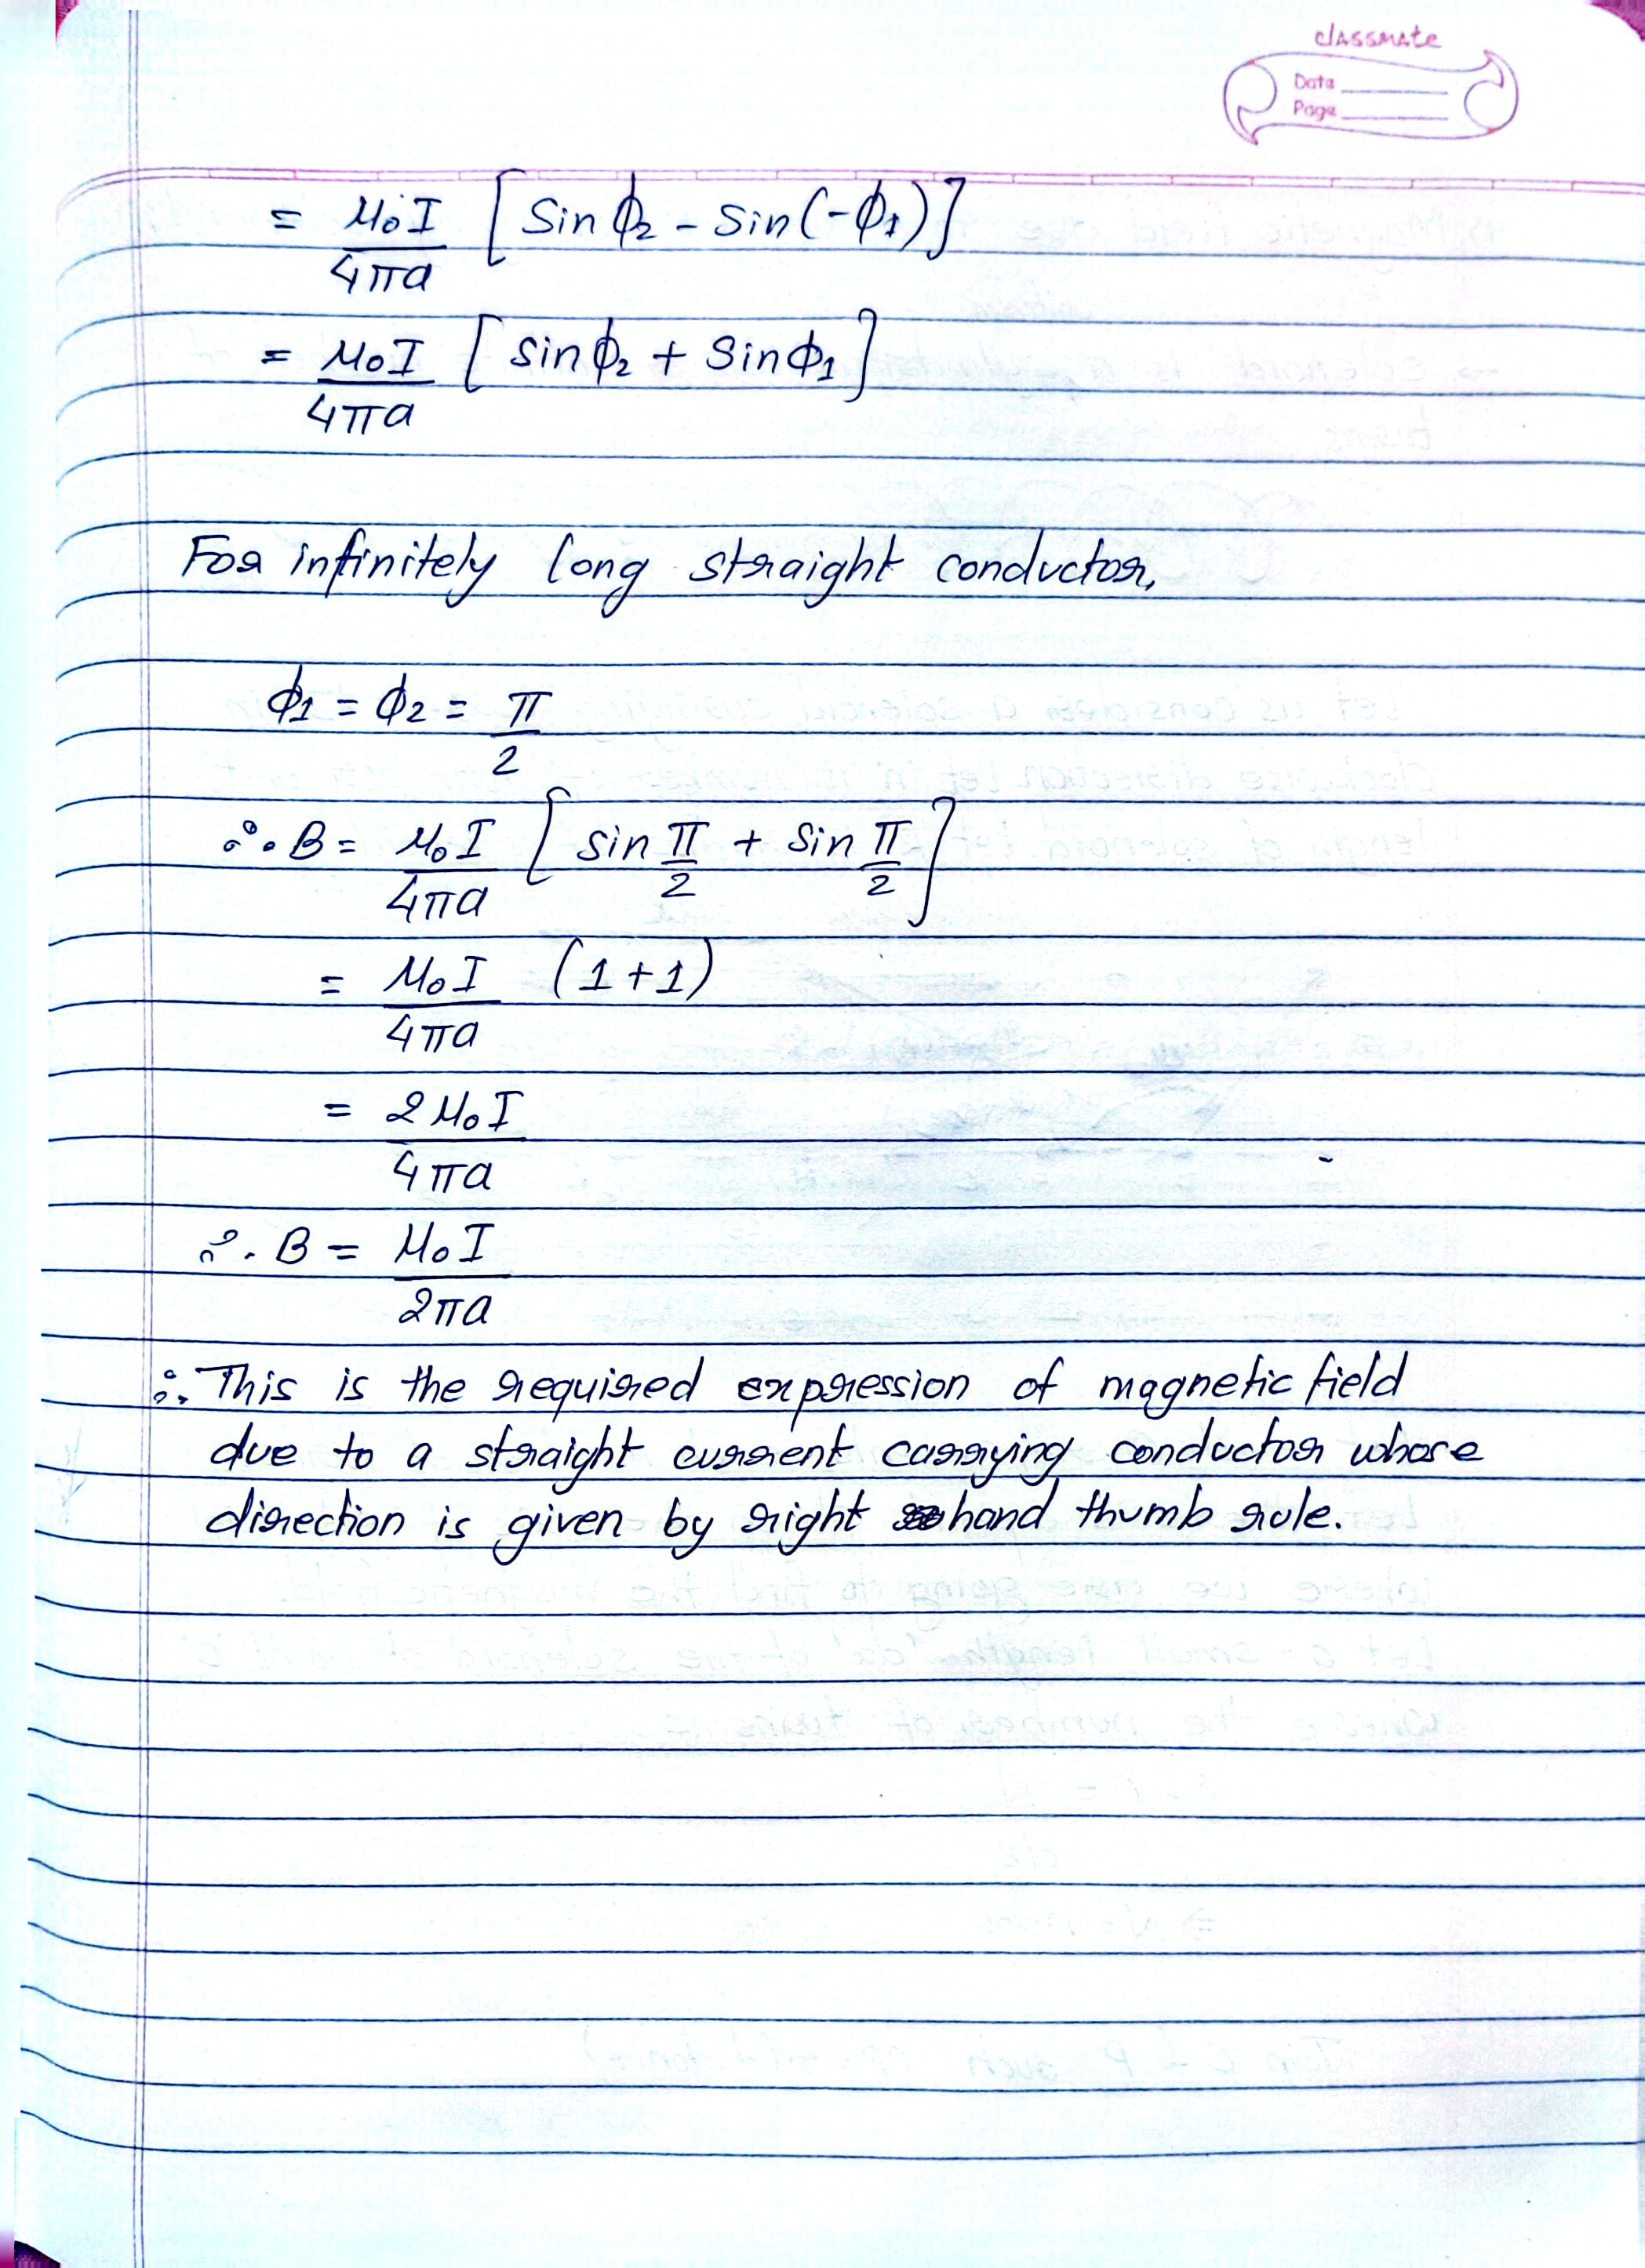 classmate
Date
Page
= μ₀I/4πa [Sin ϕ₂ - Sin(-ϕ₁)]
= μ₀I/4πa [sin ϕ₂ + Sin ϕ₁]
For infinitely long straight conductor,
ϕ₁ = ϕ₂ = π/2
∴ B = μ₀I/4πa [sin π/2 + sin π/2]
= μ₀I/4πa (1+1)
= 2μ₀I/4πa
∴ B = μ₀I/2πa
∴ This is the required expression of magnetic field
due to a straight current carrying conductor whose
direction is given by right hand thumb rule.